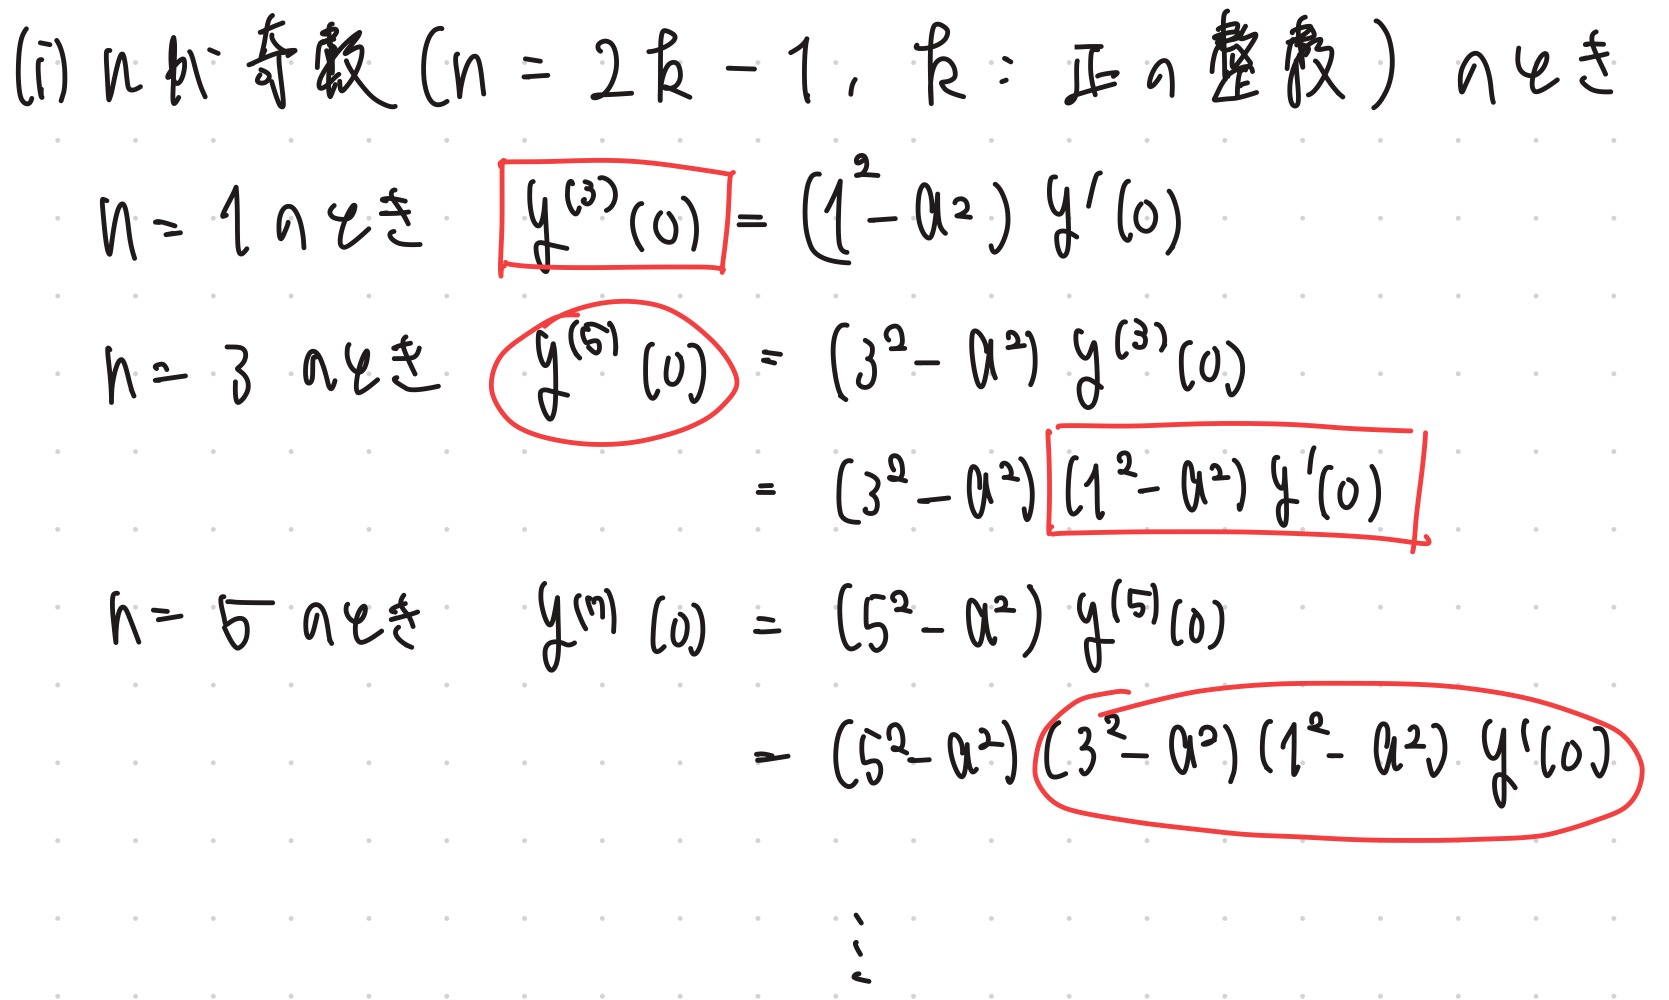 (i) nが奇数 (n = 2k - 1, k : 正の整数) のとき
n = 1 のとき y^(3)(0) = (1^2 - a^2) y'(0)
n = 3 のとき y^(5)(0) = (3^2 - a^2) y^(3)(0)
= (3^2 - a^2) (1^2 - a^2) y'(0)
n = 5 のとき y^(7)(0) = (5^2 - a^2) y^(5)(0)
= (5^2 - a^2) (3^2 - a^2) (1^2 - a^2) y'(0)
⋮